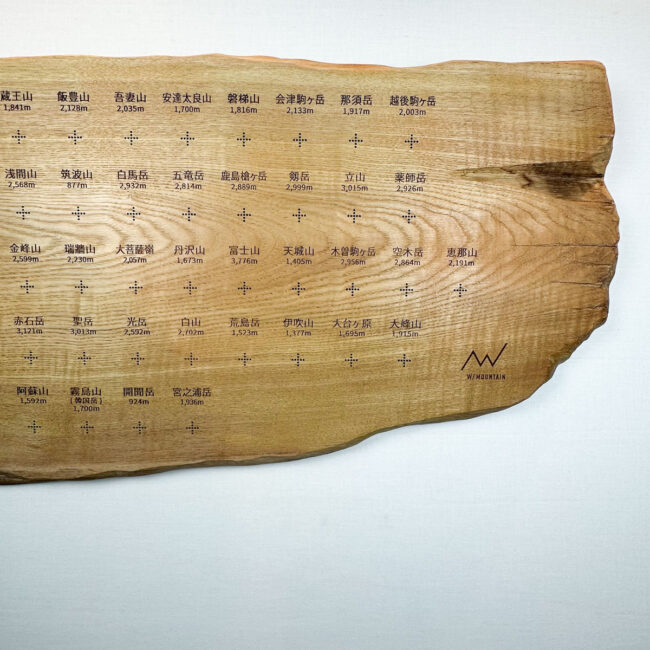 蔵王山 飯豊山 吾妻山 安達太良山 磐梯山 会津駒ヶ岳 那須岳 越後駒ヶ岳
1,841m 2,128m 2,035m 1,700m 1,816m 2,133m 1,917m 2,003m
浅間山 筑波山 白馬岳 五竜岳 鹿島槍ヶ岳 剱岳 立山 薬師岳
2,568m 877m 2,932m 2,814m 2,889m 2,999m 3,015m 2,926m
金峰山 瑞牆山 大菩薩嶺 丹沢山 富士山 天城山 木曽駒ヶ岳 空木岳 恵那山
2,599m 2,230m 2,057m 1,673m 3,776m 1,405m 2,956m 2,864m 2,191m
赤石岳 聖岳 光岳 白山 荒島岳 伊吹山 大台ヶ原 大峰山
3,121m 3,013m 2,592m 2,702m 1,523m 1,377m 1,695m 1,915m
W/MOUNTAIN
阿蘇山 霧島山 開聞岳 宮之浦岳
1,592m (韓国岳) 924m 1,936m
1,700m